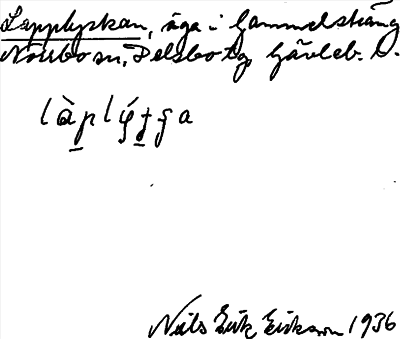 Lapplyskan, äga i Gammelsträng
Norrbo sn, Delsbo tg, Gävleb. l.
làplýʂga
Nils Erik Erikson 1936